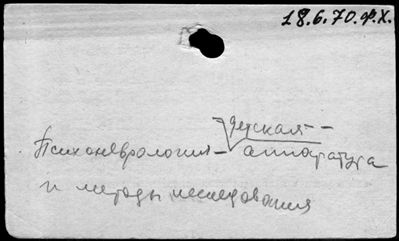 18.6.70.Ф.Х.
детская –
Психоневрология – аппаратура
и методы исследования